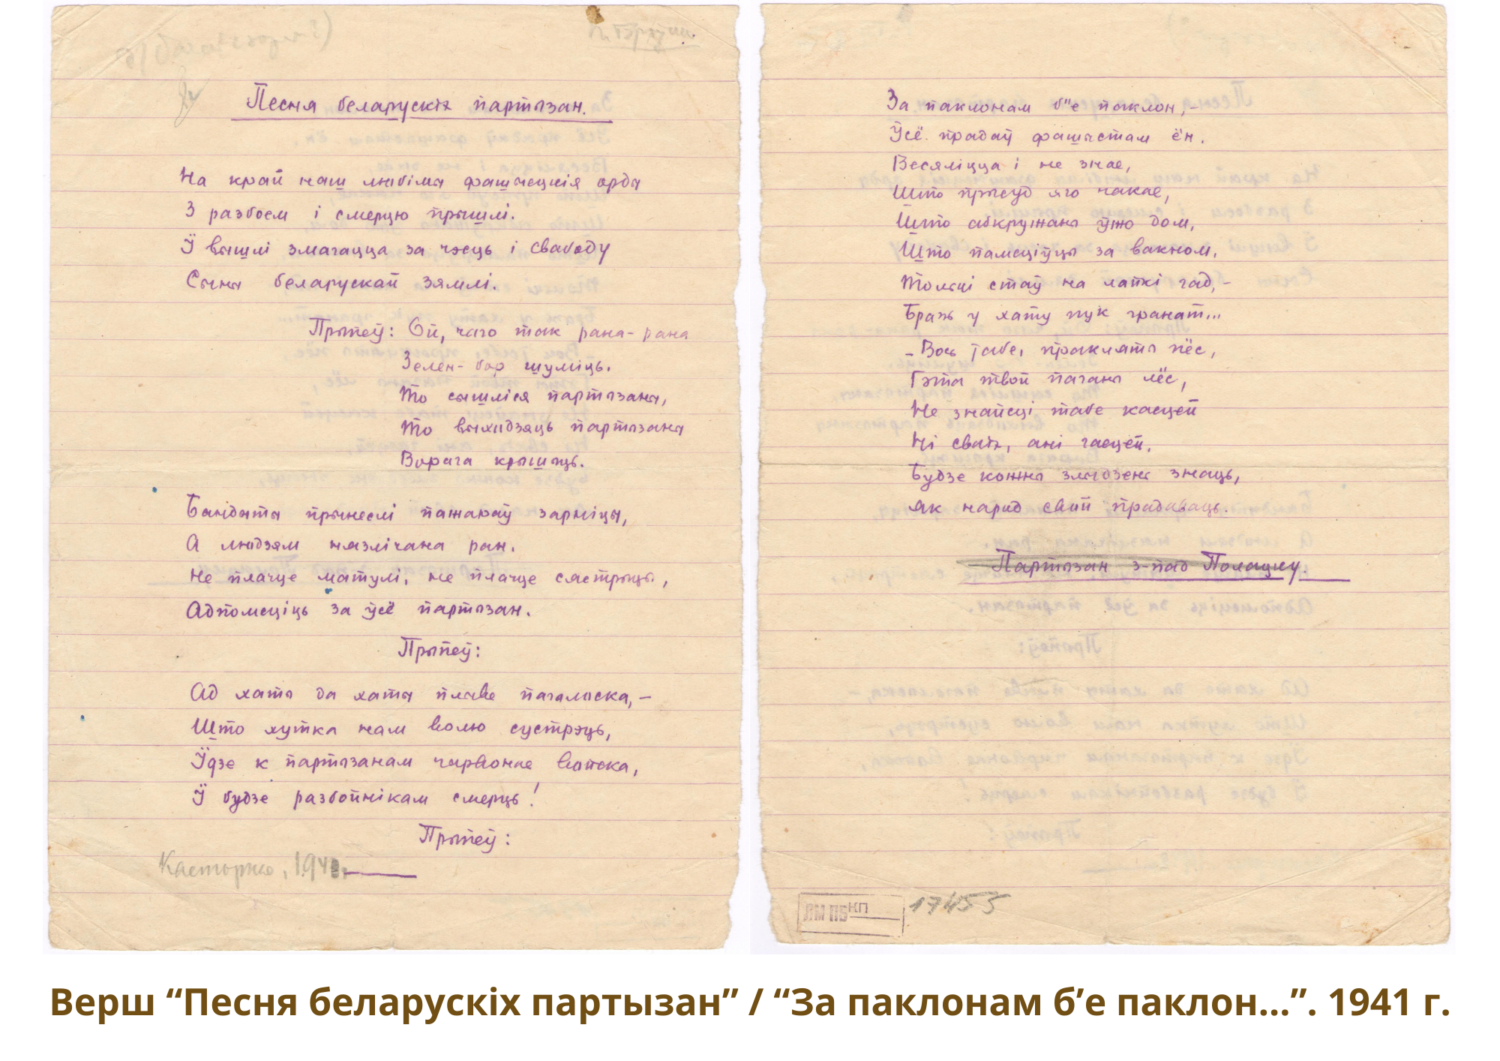 Песня беларускіх партызан.
На край наш любімы фашысцкія орды
З разбоем і смерцю прышлі.
Ў вышлі змагацца за чэсць і свабоду
Сыны беларускай зямлі.
Прыпеў: Ой, чаго так рана-рана
Зелен-бор шуміць.
То сышліся партызаны,
То выхидзяць партызаны
Ворага крышыць.
Бандыты прынеслі пажараў зарніцы,
А людзям нязлічана ран.
Не плачце матулі, не плачце сястрыцы,
Адпомсціць за ўсё партызан.
Прыпеў:
Ад хаты да хаты плыве пагалоска,—
Што хутка нам волю сустрэць,
Ўдзе к партызанам чырвонае войска,
Ў будзе разбойнікам смерць!
Прыпеў:
Касторнко, 194
За паклонам б"е паклон,—
Ўсё прадаў фашыстам ён.
Весяліцца і не знае,
Што прысуд яго чакае,
Што абкружана ўжо дом,
Што памсціўцы за вакном.
Толькі стаў на лапкі гад,—
Бразь у хату пук гранат...
— Вось табе, прокляты пёс,
Гэта твой паганы лёс,
Не знайсці табе касцей
Ні сваты, ані гасцей.
Будзе кожны злыдзень знаць,
Як народ свой прадаваць.
Партызан з-пад Полацку.
КП 17455
Верш “Песня беларускіх партызан” / “За паклонам б’е паклон...”. 1941 г.